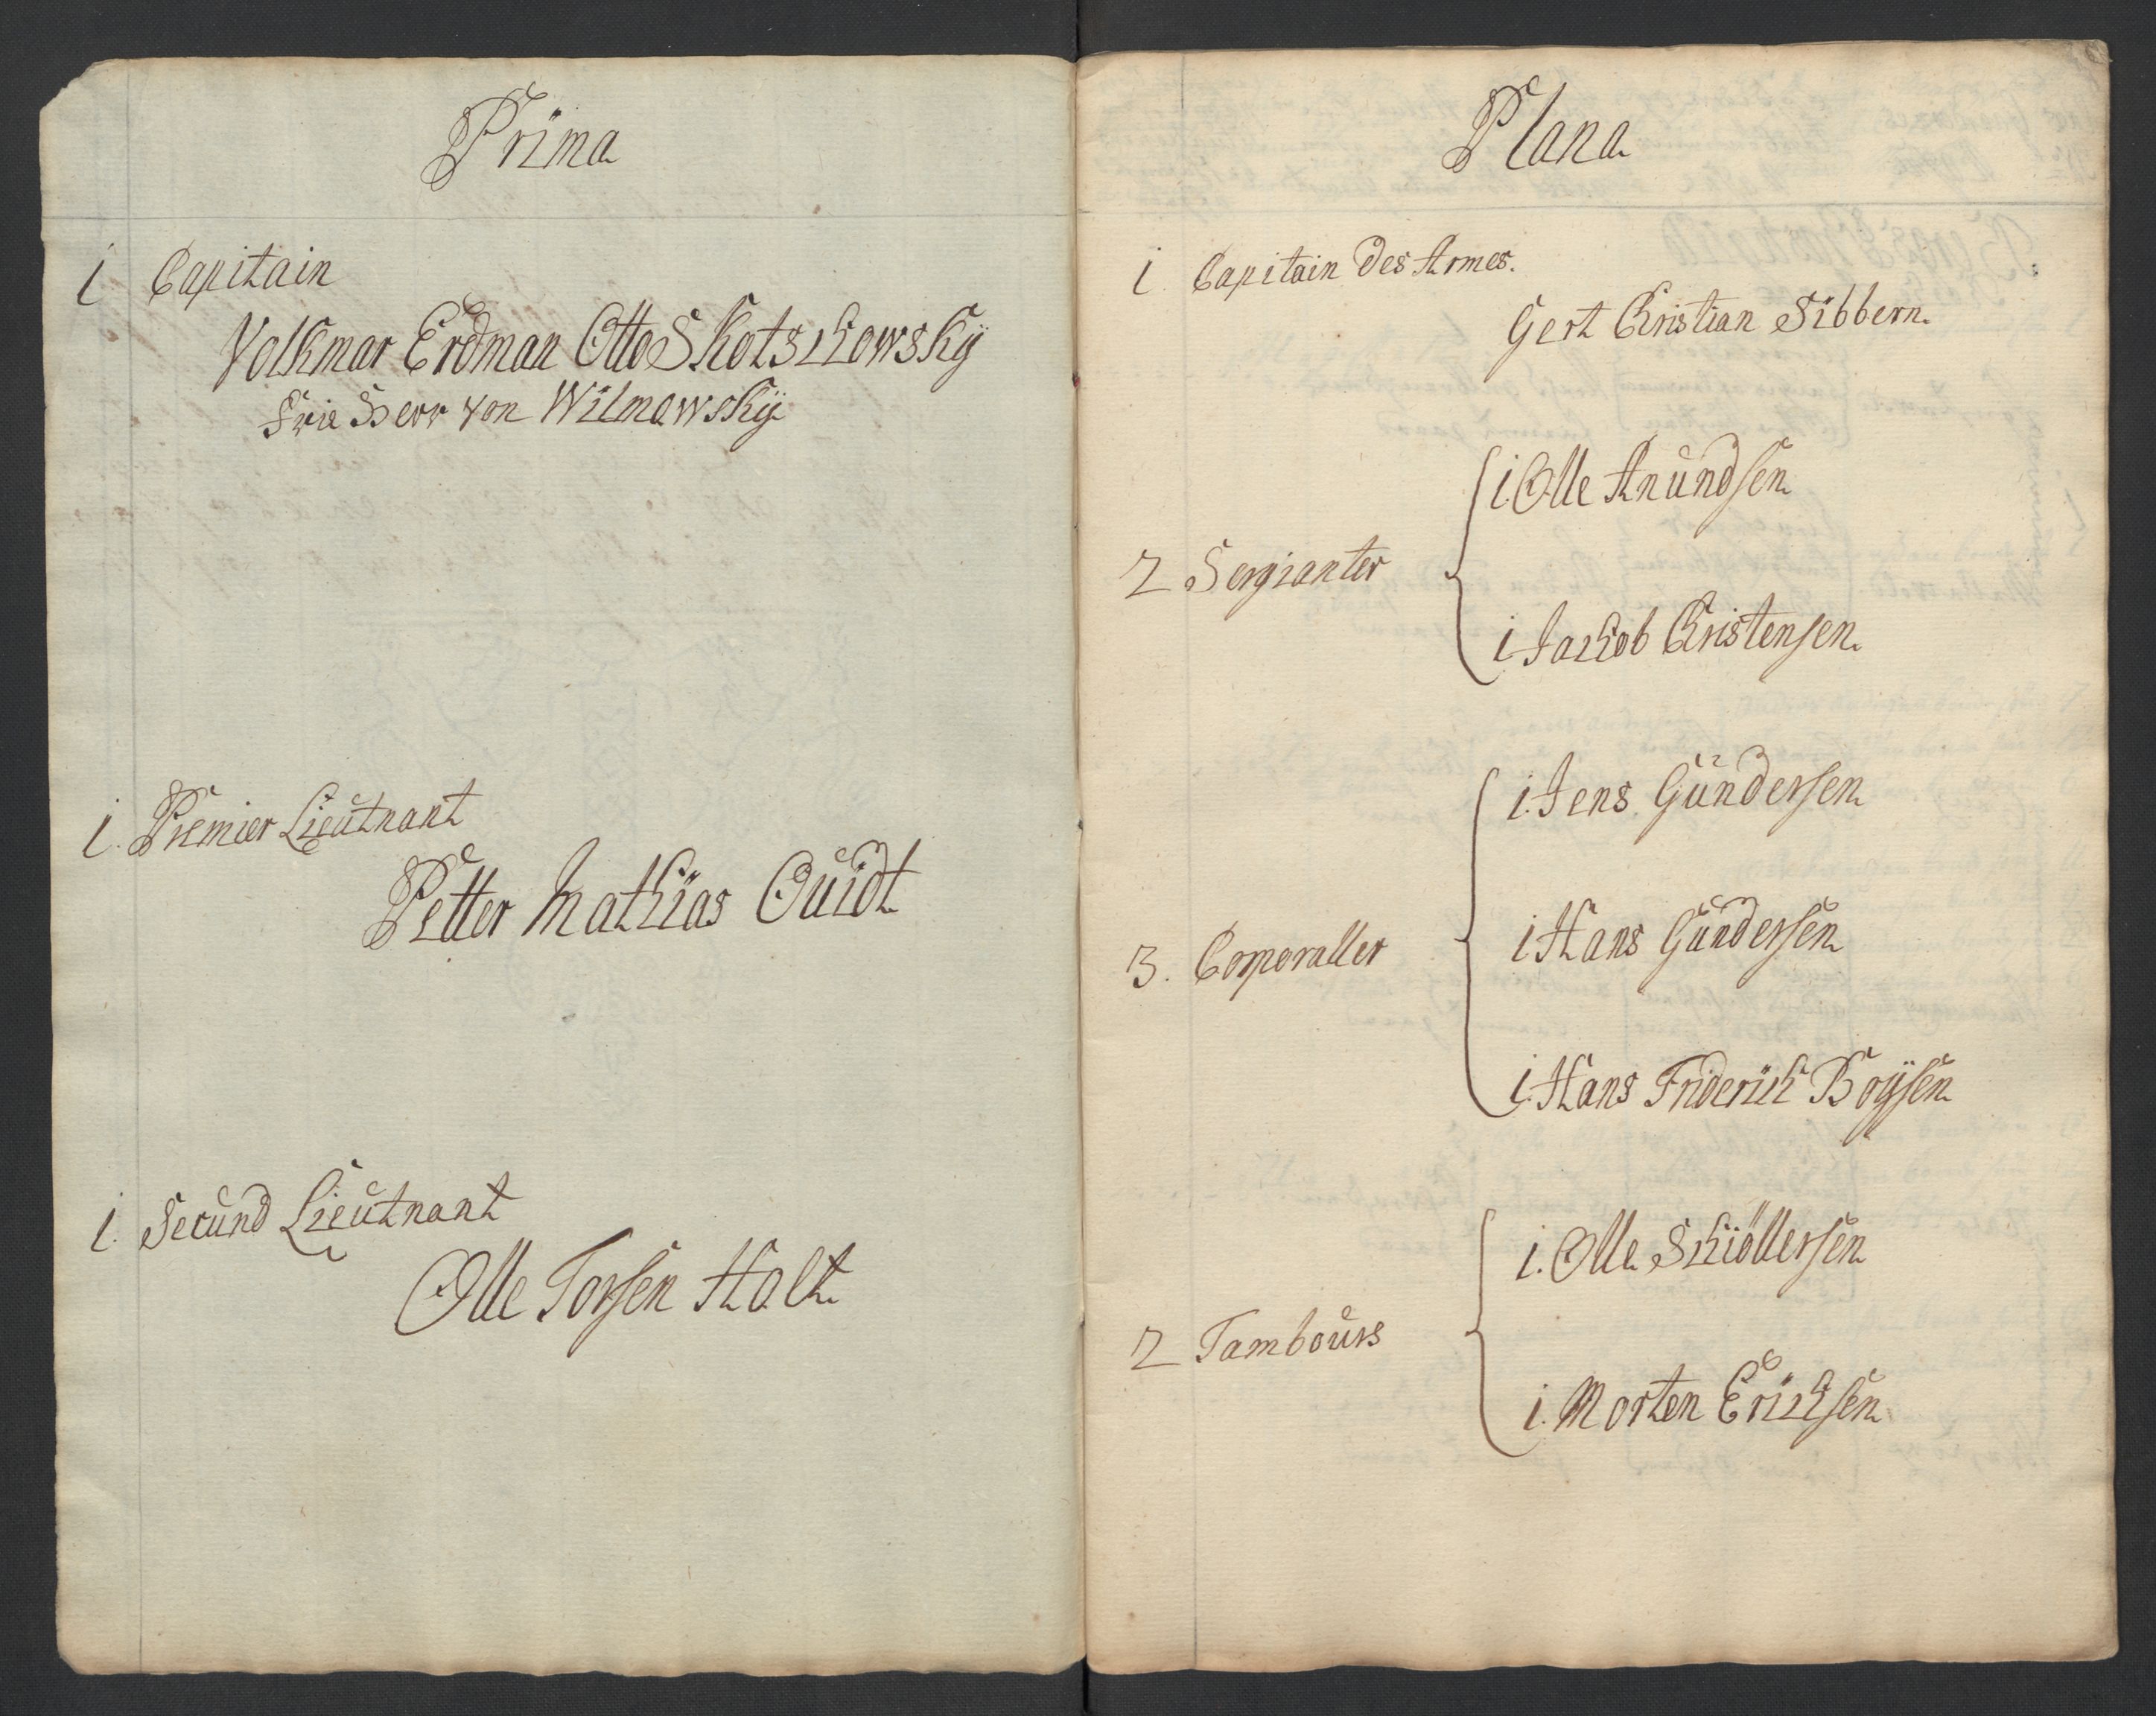 Prima
1 Capitain
Volkmar Erdman Otto Skotschowskÿ
Frie Herr von Wilmowskÿ
1. Premier Lieutnant
Petter Mathias Quidt
1. Secund Lieutnant
Olle Torsen Holt
Plana
1 Capitain des Armes.
Gert Christian Sibbern.
1. Olle Anundsen
2 Sergianter
1 Jackob Christensen.
1. Jens Gundersen
1 Hans Gundersen
3. Corporaller
1. Hans Friderich Boÿsen
1. Olle Skiöllersen
2 Tambours
1. Morten Erichsen